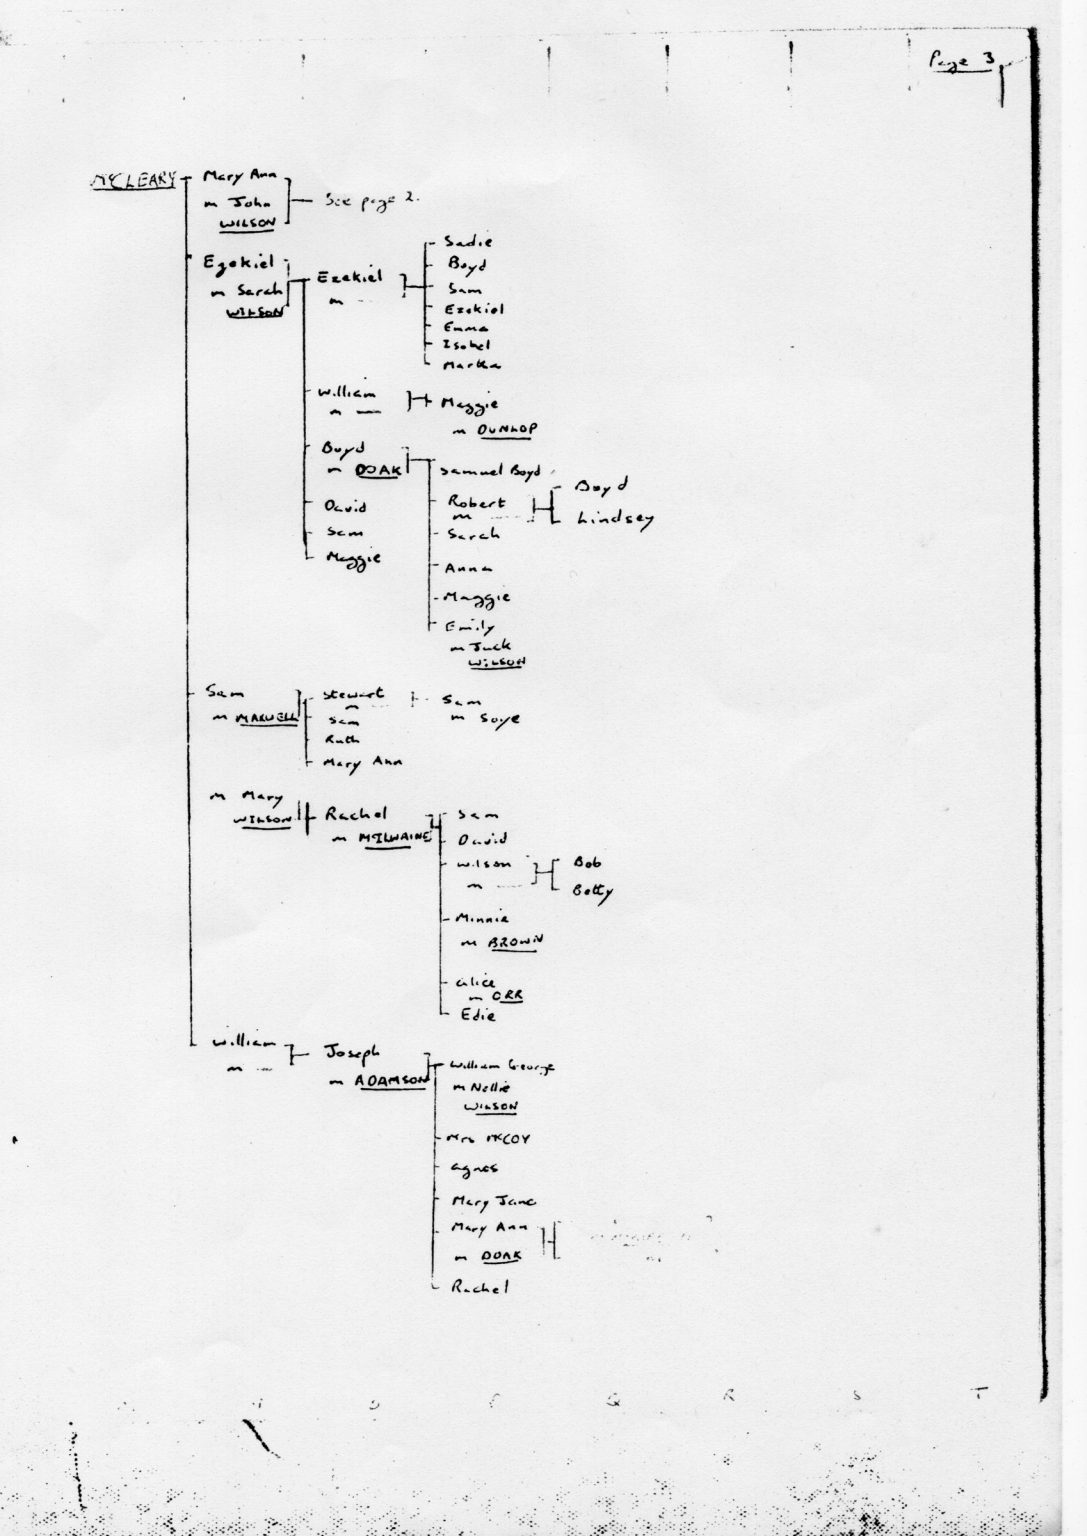 Page 3
McCLEARY
Mary Ann
m John
WILSON
See page 2.
Ezekiel
m Sarah
WILSON
Ezekiel
m
Sadie
Boyd
Sam
Ezekiel
Emma
Isobel
Martha
William
m
Maggie
m DUNLOP
Boyd
m DOAK
Samuel Boyd
Robert
m
Boyd
Lindsey
Sarah
Anna
Maggie
Emily
m Jack
WILSON
David
Sam
Maggie
Sam
m MAXWELL
Stewart
m
Sam
m Soye
Sam
Ruth
Mary Ann
m Mary
WILSON
Rachel
m McILWAINE
Sam
David
Wilson
m
Bob
Betty
Minnie
m BROWN
Alice
m ORR
Edie
William
m
Joseph
m ADAMSON
William George
m Nellie
WILSON
Mrs McCOY
Agnes
Mary Jane
Mary Ann
m DOAK
Rachel
Q R S T